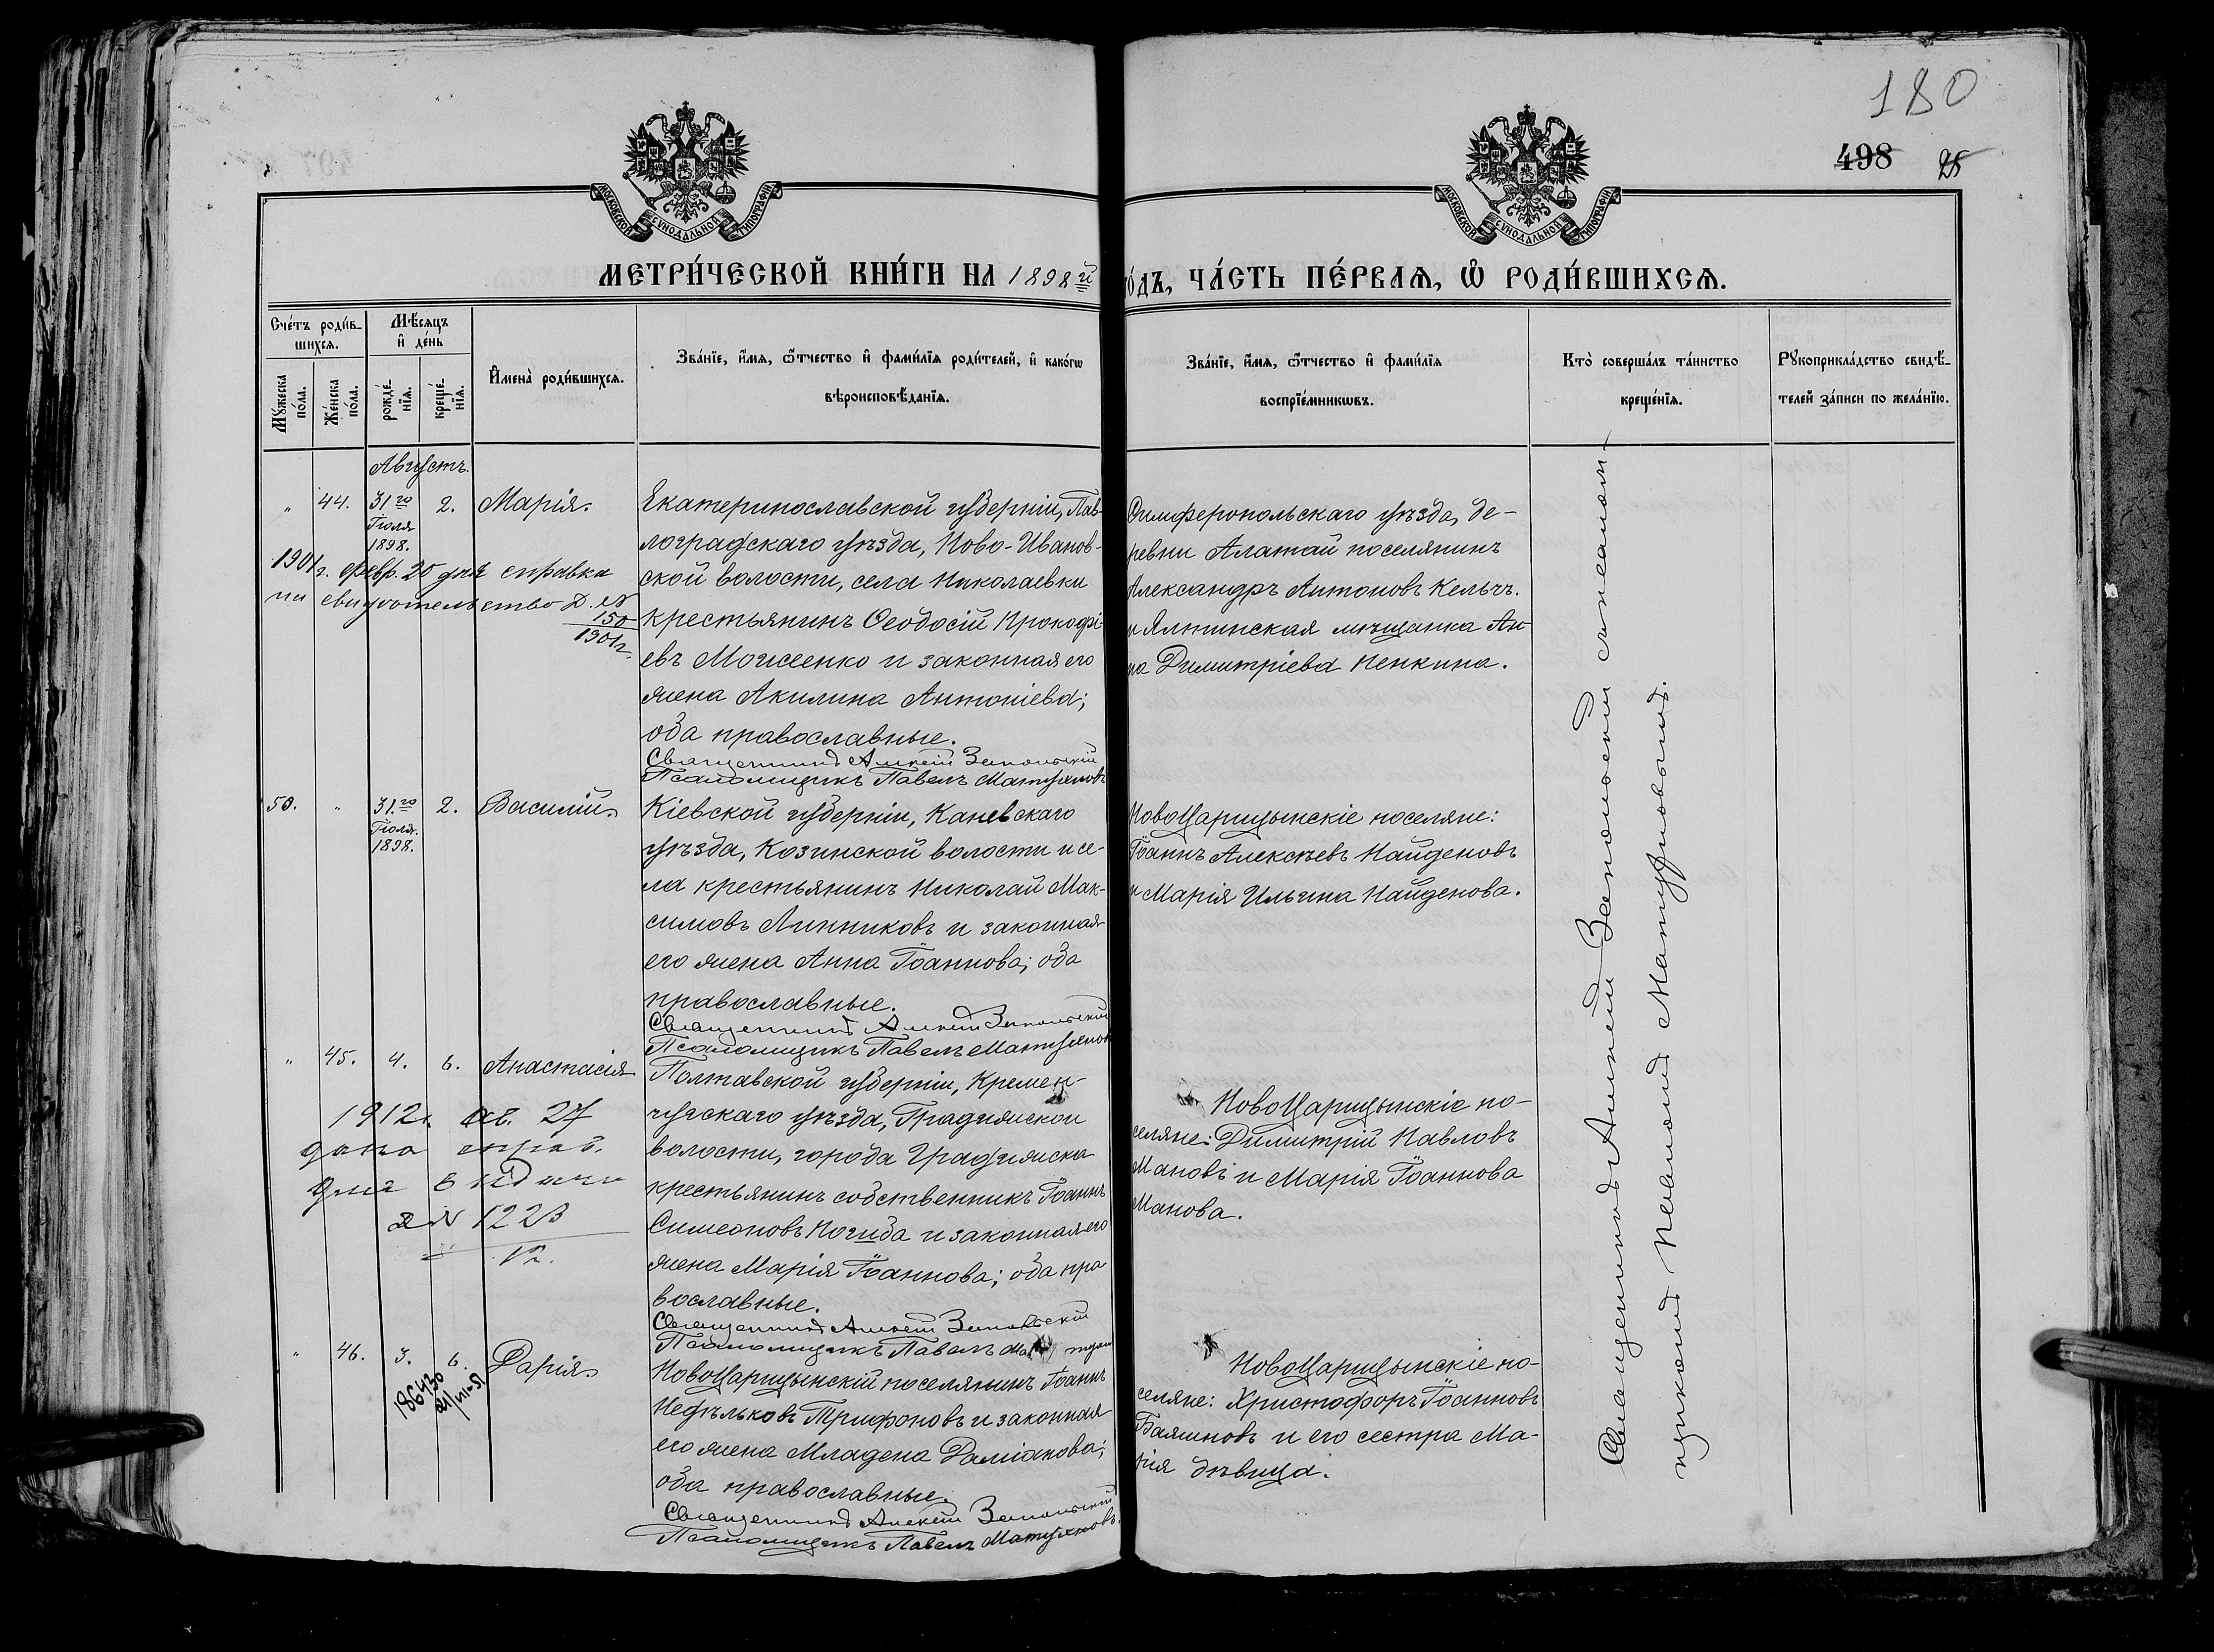 180
498 25
МОСКОВСКОЙ СѴНОДАЛЬНОЙ ТИПОГРАФІИ
МОСКОВСКОЙ СѴНОДАЛЬНОЙ ТИПОГРАФІИ
МЕТРИ́ЧЕСКОЙ КНИ́ГИ НА 1898й
го́дъ, ЧА́СТЬ ПЕ́РВАѦ, Ѡ҆ РОДИ́ВШИХСѦ.
Сче́тъ роди́в-
шихсѧ.
Мꙋжеска по́ла.
Же́нска по́ла.
Мѣ́сѧцъ
и҆ де́нь
рожде́-
нїѧ.
креще́-
нїѧ.
И҆мена̀ роди́вшихсѧ.
Зва́нїе, и҆́мѧ, ѻ҆́тчество и҆ фами́лїѧ роди́телей, и҆ како́гѡ
вѣроисповѣ́данїѧ.
Зва́нїе, и҆́мѧ, ѻ҆́тчество и҆ фами́лїѧ
воспрїе́мникѡвъ.
Кто̀ соверша́лъ та́инство
креще́нїѧ.
Рꙋкоприкла́дство свидѣ́-
телей за́писи по жела́нїю.
Августъ.
" 44. 31го 2. Марія.
Іюля
1898.
1901г. февр. 20 дня справка
150
1901г.
Екатеринославской губерніи, Пав-
лоградскаго уѣзда, Ново-Иванов-
ской волости, села Николаевки
крестьянинъ Ѳеодосій Прокофі-
евъ Моисеенко и законная его
жена Акилина Антоніева;
оба православные.
Священникъ Алексій Запольскій
Псаломщикъ Павелъ Матужновъ
Симферопольскаго уѣзда, де-
ревни Алатай поселянинъ
Александръ Антоновъ Кельчъ.
и Ялтинская мѣщанка Ан
на Димитріева Пенкина.
50. " 31.го 2. Василій.
Іюля.
1898.
Кіевской губерніи, Каневскаго
уѣзда, Козинской волости и се-
ла крестьянинъ Николай Мак-
симовъ Линниковъ и законная
его жена Анна Іоаннова; оба
православные.
Священникъ Алексій Запольскій
Псаломщикъ Павелъ Матужнов
НовоЦарицынскіе поселяне:
Іоаннъ Алексѣевъ Найденовъ
и Марія Ильина Найденова.
" 45. 4. 6. Анастасія
1912г. ав. 27
дана справ.
1223
12.
Полтавской губерніи, Кремен-
чугскаго уѣзда, Градижской
волости, города Градижска
крестьянинъ собственникъ Іоаннъ
Симеоновъ Погиба и законная его
жена Марія Іоаннова; оба пра
вославные.
Священникъ Алексій Запольскій
Псаломщикъ Павелъ
НовоЦарицынскіе по-
селяне: Димитрій Павловъ
Мановъ и Марія Іоаннова
Манова.
" 46. 3. 6. Дарія.
186430
НовоЦарицынскій поселянинъ Іоаннъ
Недѣльковъ Трифоновъ и законная
его жена Младена Даміанова;
оба православные.
Священникъ Алексій Запольскій
Псаломщикъ Павелъ Матужновъ.
НовоЦарицынскіе по-
селяне: Христофоръ Іоанновъ
Баяшновъ и его сестра Ма-
рія дѣвица.
Священникъ Алексій Запольскій съ псалом-
щикомъ Павломъ Матужновымъ.